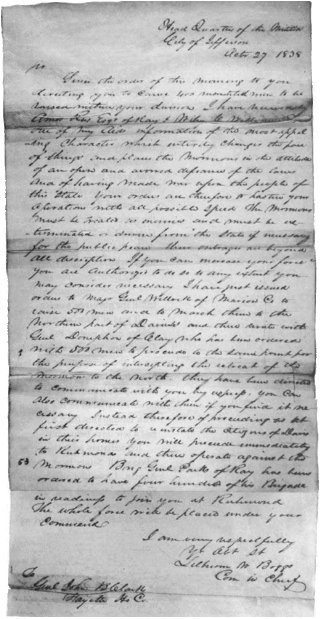 Head Quarters of the Militia
City of Jefferson
Octo 27 1838
Since the order of this morning to you
directing you to cause 400 mounted men to be
raised within your division I have received by
Amos Rees Esqr of Ray &
one of my aids information of the most appal
ing character which entirely changes the face
of things and places the Mormons in the attitude
of an open and avowed defiance of the laws
and of having made war upon the people of
this State Your orders are therefore to hasten your
operations with all possible speed The Mormons
must be treated as enemies and must be ex-
terminated or driven from the State if necessary
for the public peace their outrages are beyond
all description If you can increase your force
you are authorized to do so to any extent you
may consider necessary I have just issued
orders to Majr Genl Willock of Marion Co to
raise 500 men and to march them to the
Northern part of Daviess and there unite with
Genl Doniphan of Clay who has been ordered
with 500 men to proceed to the same point for
the purpose of intercepting the retreat of the
Mormons to the North. They have been directed
to communicate with you by express, you can
also communicate with them if you find it ne
cessary. Instead therefore of proceeding as at
first directed to reinstate the citizens of Daviess
in their homes you will proceed immediately
to Richmond and there operate against the
Mormons Brig Genl Parks of Ray has been
ordered to have four hundred of his Brigade
in readiness to join you at Richmond
The whole force will be placed under your
Command
I am very respectfully
Yr obt St
Lilburn W Boggs
Com in Chief
To
Genl John B Clark
Fayette Ho Co.